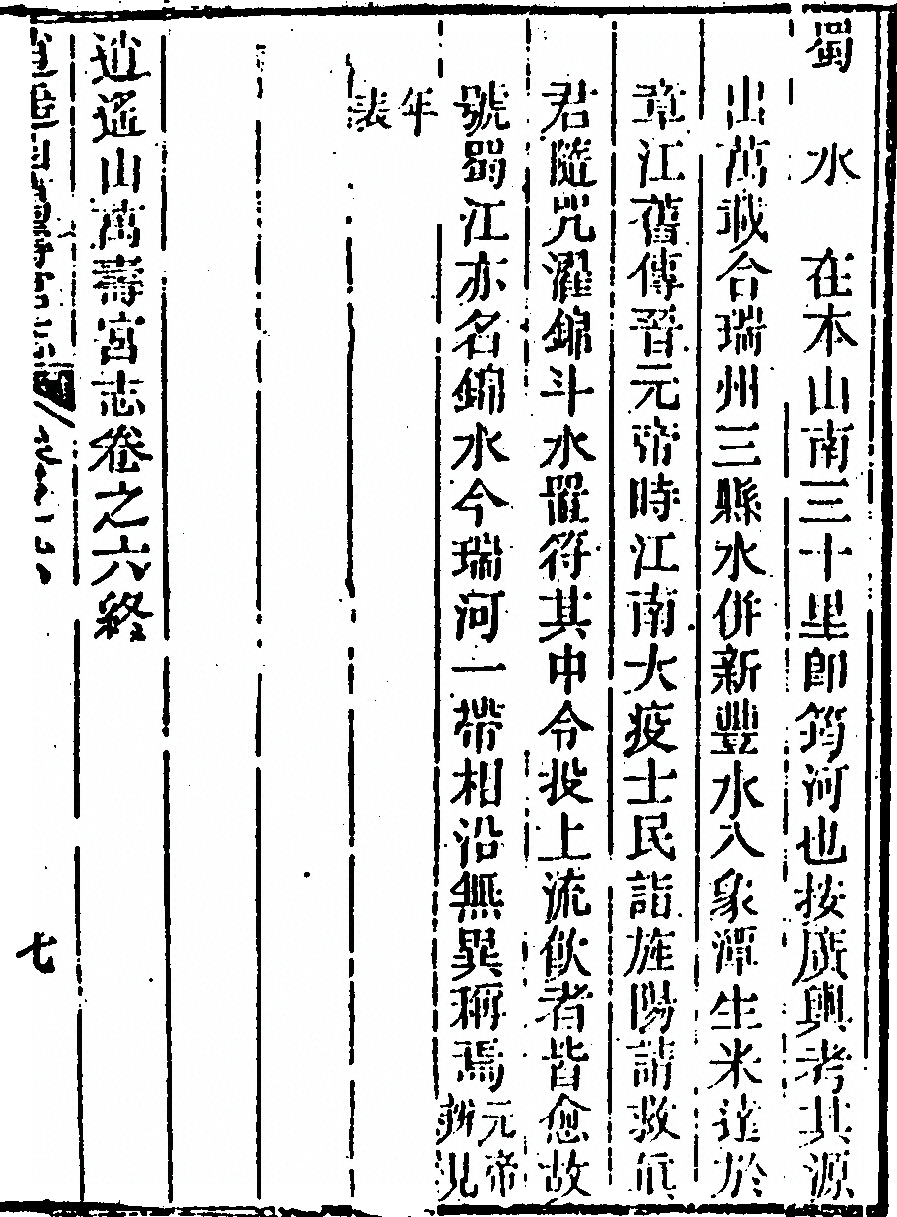 蜀水 在本山南三十里卽筠河也按廣輿考其源
出萬載合瑞州三縣水併新豐水入象潭生米達於
章江舊傳晉元帝時江南大疫士民詣旌陽請救眞
君隨咒濯錦斗水置符其中令投上流飲者皆愈故
號蜀江亦名錦水今瑞河一帶相沿無異稱焉元帝
年辨見
表
逍遙山萬壽宮志卷之六終
七